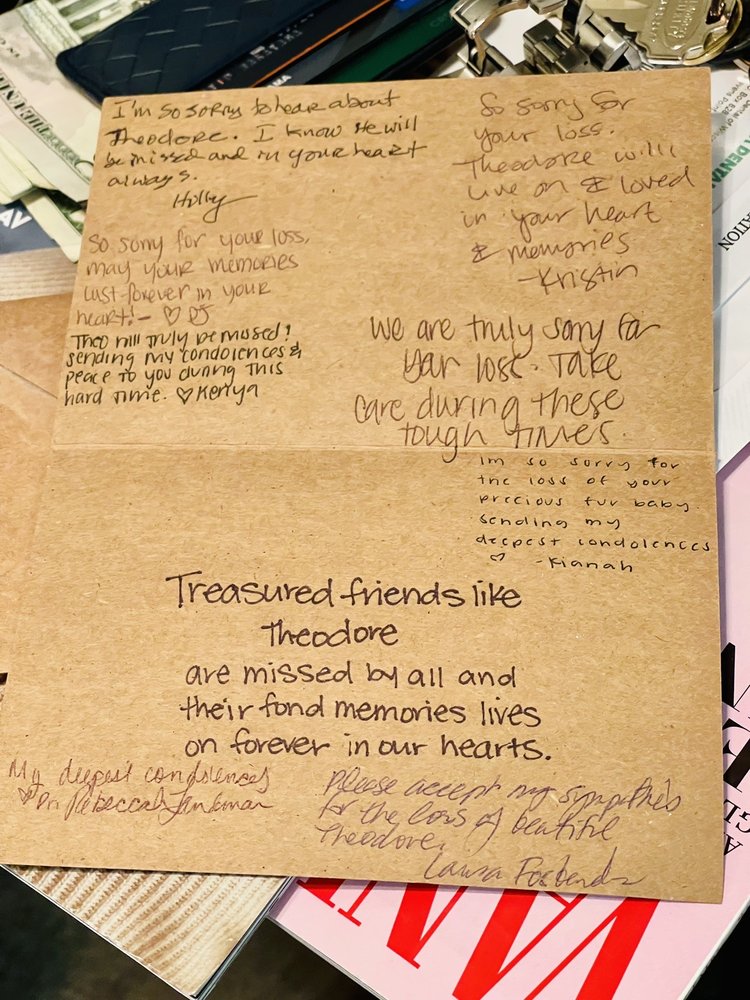 I'm so sorry to hear about
Theodore. I know He will
be missed and in your heart
always.
Holly
So sorry for
your loss.
Theodore will
live on & loved
in your heart
& memories
-Kristin
So sorry for your loss,
may your memories
last forever in your
heart! - ♡
Theo will truly be missed!
sending my condolences &
peace to you during this
hard time. ♡ Kerrya
We are truly sorry for
your loss. Take
care during these
tough times.
Im so sorry for
the loss of your
precious fur baby.
sending my
deepest condolences
♡ -Kianah
Treasured friends like
Theodore
are missed by all and
their fond memories lives
on forever in our hearts.
My deepest condolences
♡ Dr. Rebecca
Please accept my sympathies
for the loss of beatiful
Theodore.
Laura
DENTAL